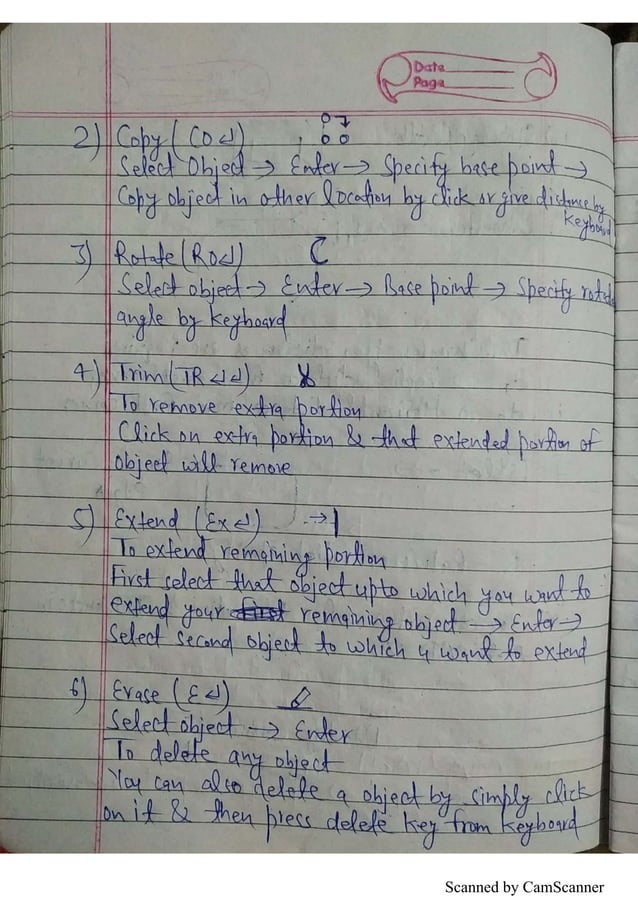 Date
Page
2) Copy (CO↲)
Select Object → Enter → Specify base point →
Copy object in other location by click or give distance by
Keyboard
3) Rotate (RO↲)
Select object → Enter → Base point → Specify rotate
angle by keyboard
4) Trim (TR↲↲)
To remove extra portion
Click on extra portion & that extended portion of
object will remove
5) Extend (Ex↲)
To extend remaining portion
First select that object upto which you want to
extend your remaining object → Enter →
Select second object to which u want to extend
6) Erase (E↲)
Select object → Enter
To delete any object
You can also delete a object by simply click
on it & then press delete key from keyboard
Scanned by CamScanner